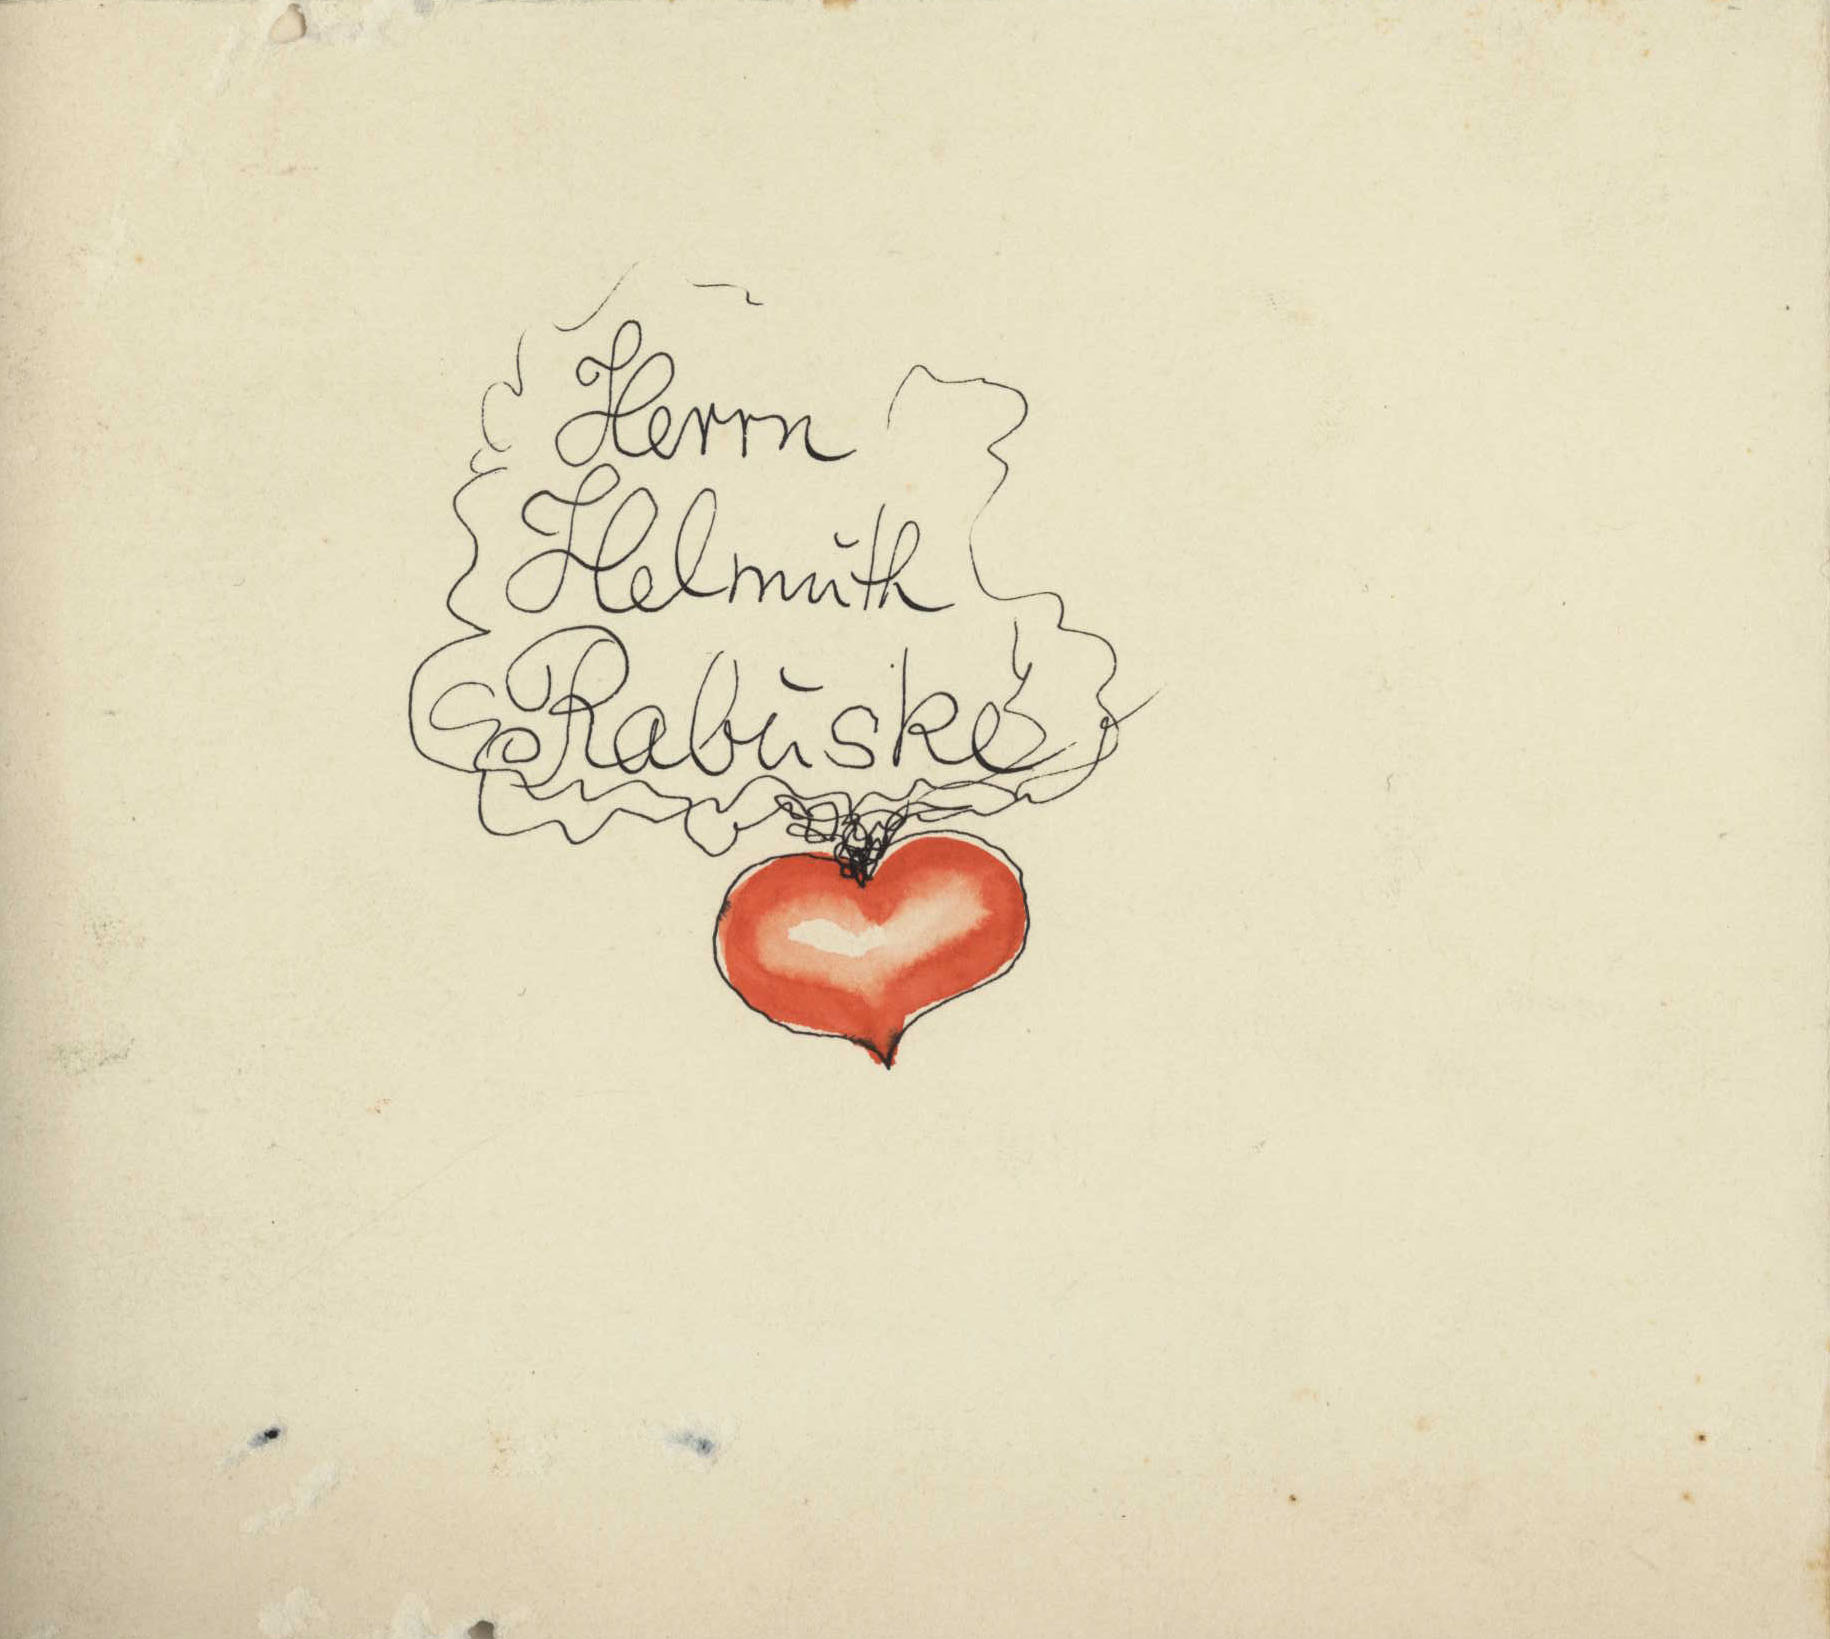 Herrn
Helmuth
Rabuske